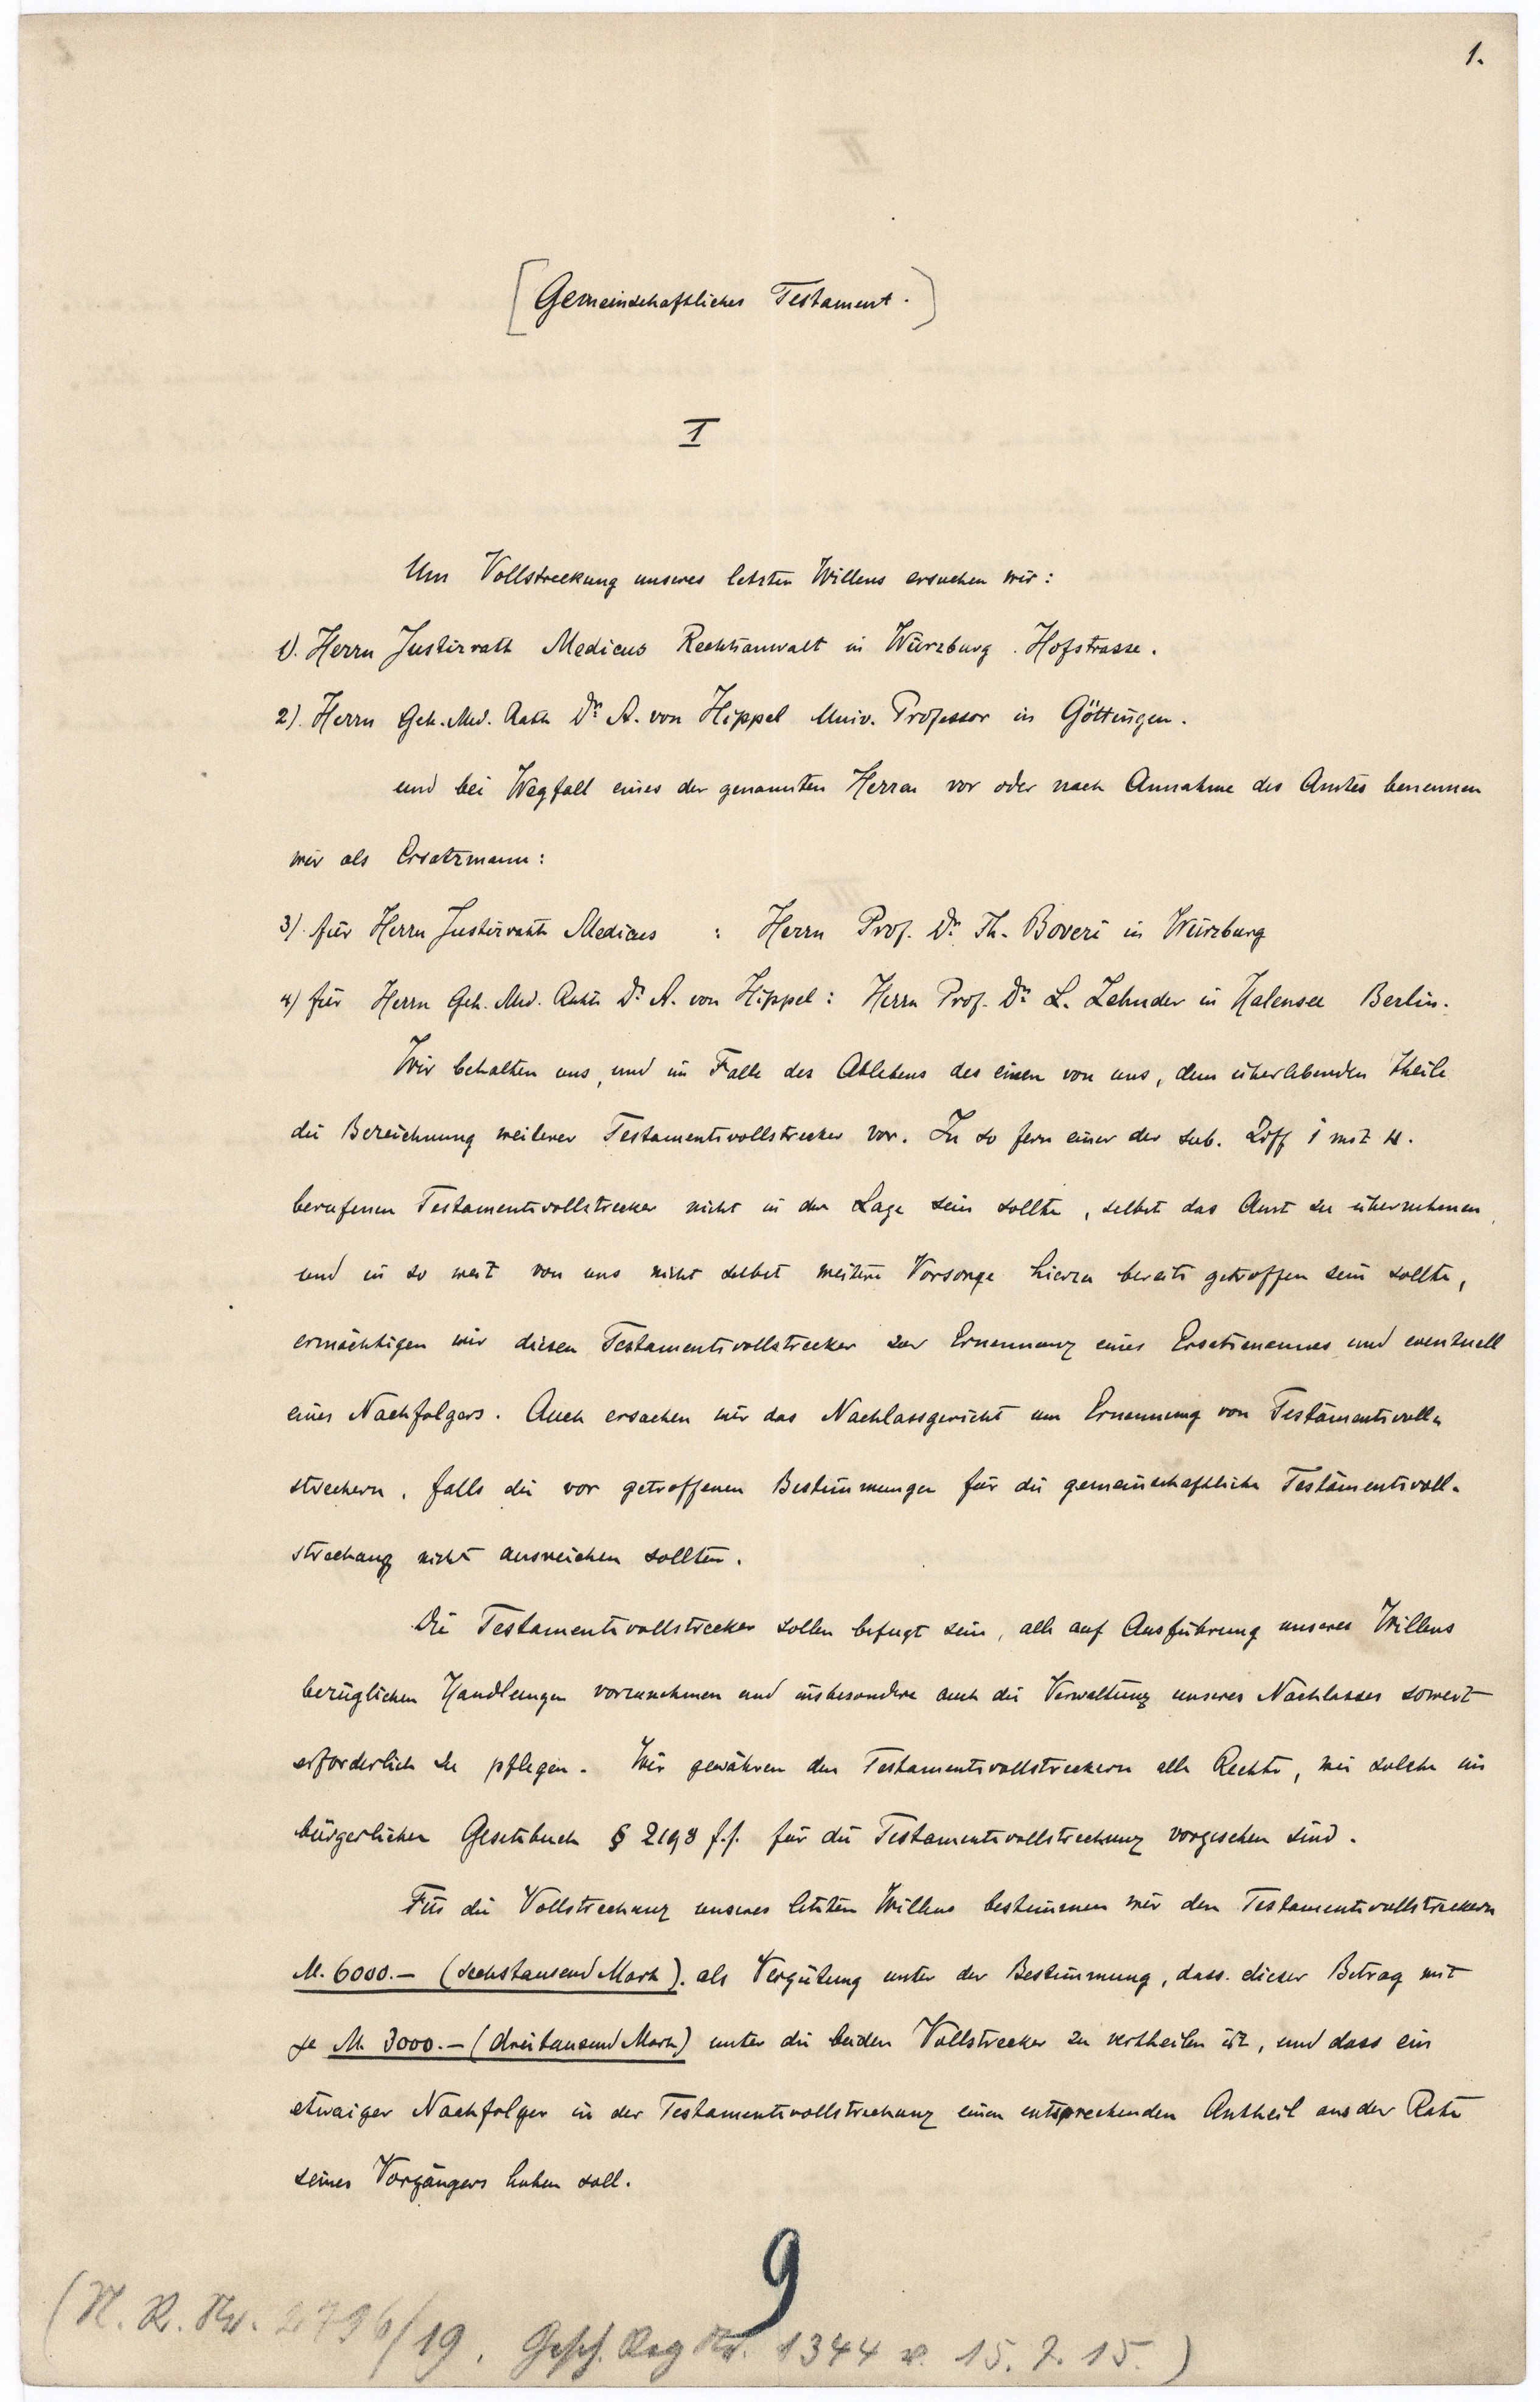 1.
[Gemeinschaftliches Testament.]
I
Um Vollstreckung unseres letzten Willens ersuchen wir:
1). Herrn Justizrath Medicus Rechtsanwalt in Würzburg. Hofstrasse.
2). Herrn Geh. Med. Rath Dr. A. von Hippel Univ. Professor in Göttingen.
und bei Wegfall eines der genannten Herren vor oder nach Annahme des Amtes benennen
wir als Ersatzmann:
3). für Herrn Justizrath Medicus : Herrn Prof. Dr. Th. Boveri in Würzburg
4) für Herrn Geh. Med. Rath Dr. A. von Hippel: Herrn Prof. Dr. L. Zehnder in Halensee Berlin.
Wir behalten uns, und im Falle des Ablebens des einen von uns, dem überlebenden Theile
die Bezeichnung weiterer Testamentsvollstrecker vor. In so fern einer der sub. Ziff 1 mit 4.
berufenen Testamentsvollstrecker nicht in der Lage sein sollte, selbst das Amt zu übernehmen,
und in so weit von uns nicht selbst weitere Vorsorge hierzu bereits getroffen sein sollte,
ermächtigen wir diesen Testamentsvollstrecker zur Ernennung eines Ersatzmannes und eventuell
eines Nachfolgers. Auch ersuchen wir das Nachlassgericht um Ernennung von Testamentsvoll-
streckern, falls die vor getroffenen Bestimmungen für die gemeinschaftliche Testamentsvoll-
streckung nicht ausreichen sollten.
Die Testamentsvollstrecker sollen befugt sein, alle auf Ausführung unseres Willens
bezüglichen Handlungen vorzunehmen und insbesondere auch die Verwaltung unseres Nachlasses soweit
erforderlich zu pflegen. Wir gewähren den Testamentsvollstreckern alle Rechte, wie solche im
bürgerlichen Gesetzbuch § 2198 f.f. für die Testamentsvollstreckung vorgesehen sind.
Für die Vollstreckung unseres letzten Willens bestimmen wir den Testamentsvollstreckern
M. 6000.— (sechstausend Mark). als Vergütung unter der Bestimmung, dass dieser Betrag mit
je M. 3000.— (dreitausend Mark) unter die beiden Vollstrecker zu vertheilen ist, und dass ein
etwaiger Nachfolger in der Testamentsvollstreckung einen entsprechenden Antheil aus der Rate
seines Vorgängers haben soll.
9
(N. R. Nr. 2796/19. Gesch. Reg Nr. 1344 v. 15. 7. 15.)